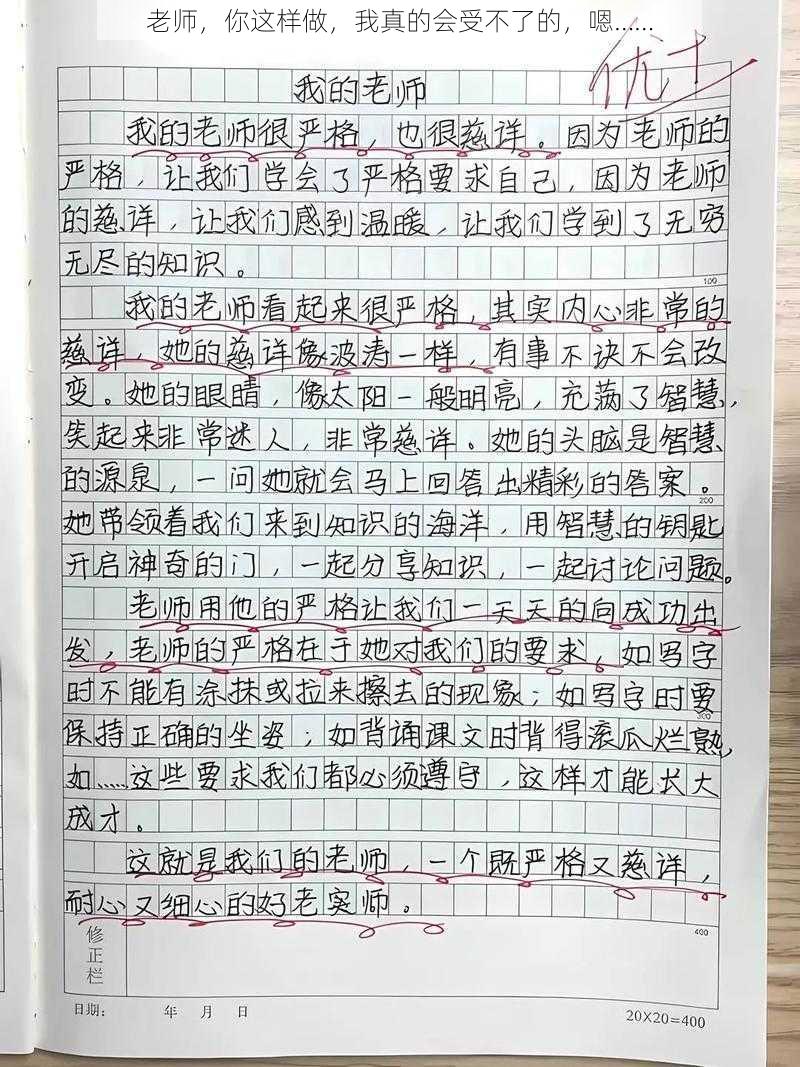 老师，你这样做，我真的会受不了的，嗯……
优+
我的老师
我的老师很严格，也很慈详。因为老师的
严格，让我们学会了严格要求自己，因为老师
的慈详，让我们感到温暖，让我们学到了无穷
无尽的知识。
100
我的老师看起来很严格，其实内心非常的
慈详，她的慈详像波涛一样，有事不诀不会改
变。她的眼睛，像太阳一般明亮，充满了智慧，
笑起来非常迷人，非常慈详。她的头脑是智慧
的源泉，一问她就会马上回答出精彩的答案。
200
她带领着我们来到知识的海洋，用智慧的钥匙
开启神奇的门，一起分享知识，一起讨论问题。
老师用他的严格让我们一天天的向成功出
发，老师的严格在于她对我们的要求，如写字
时不能有涂抹或拉来擦去的现象；如写字时要
300
保持正确的坐姿；如背诵课文时背得滚瓜烂熟，
如……这些要求我们都必须遵守，这样才能长大
成才。
这就是我们的老师，一个既严格又慈详，
耐心又细心的好老实师。
400
修正栏
日期： 年 月 日
20X20=400